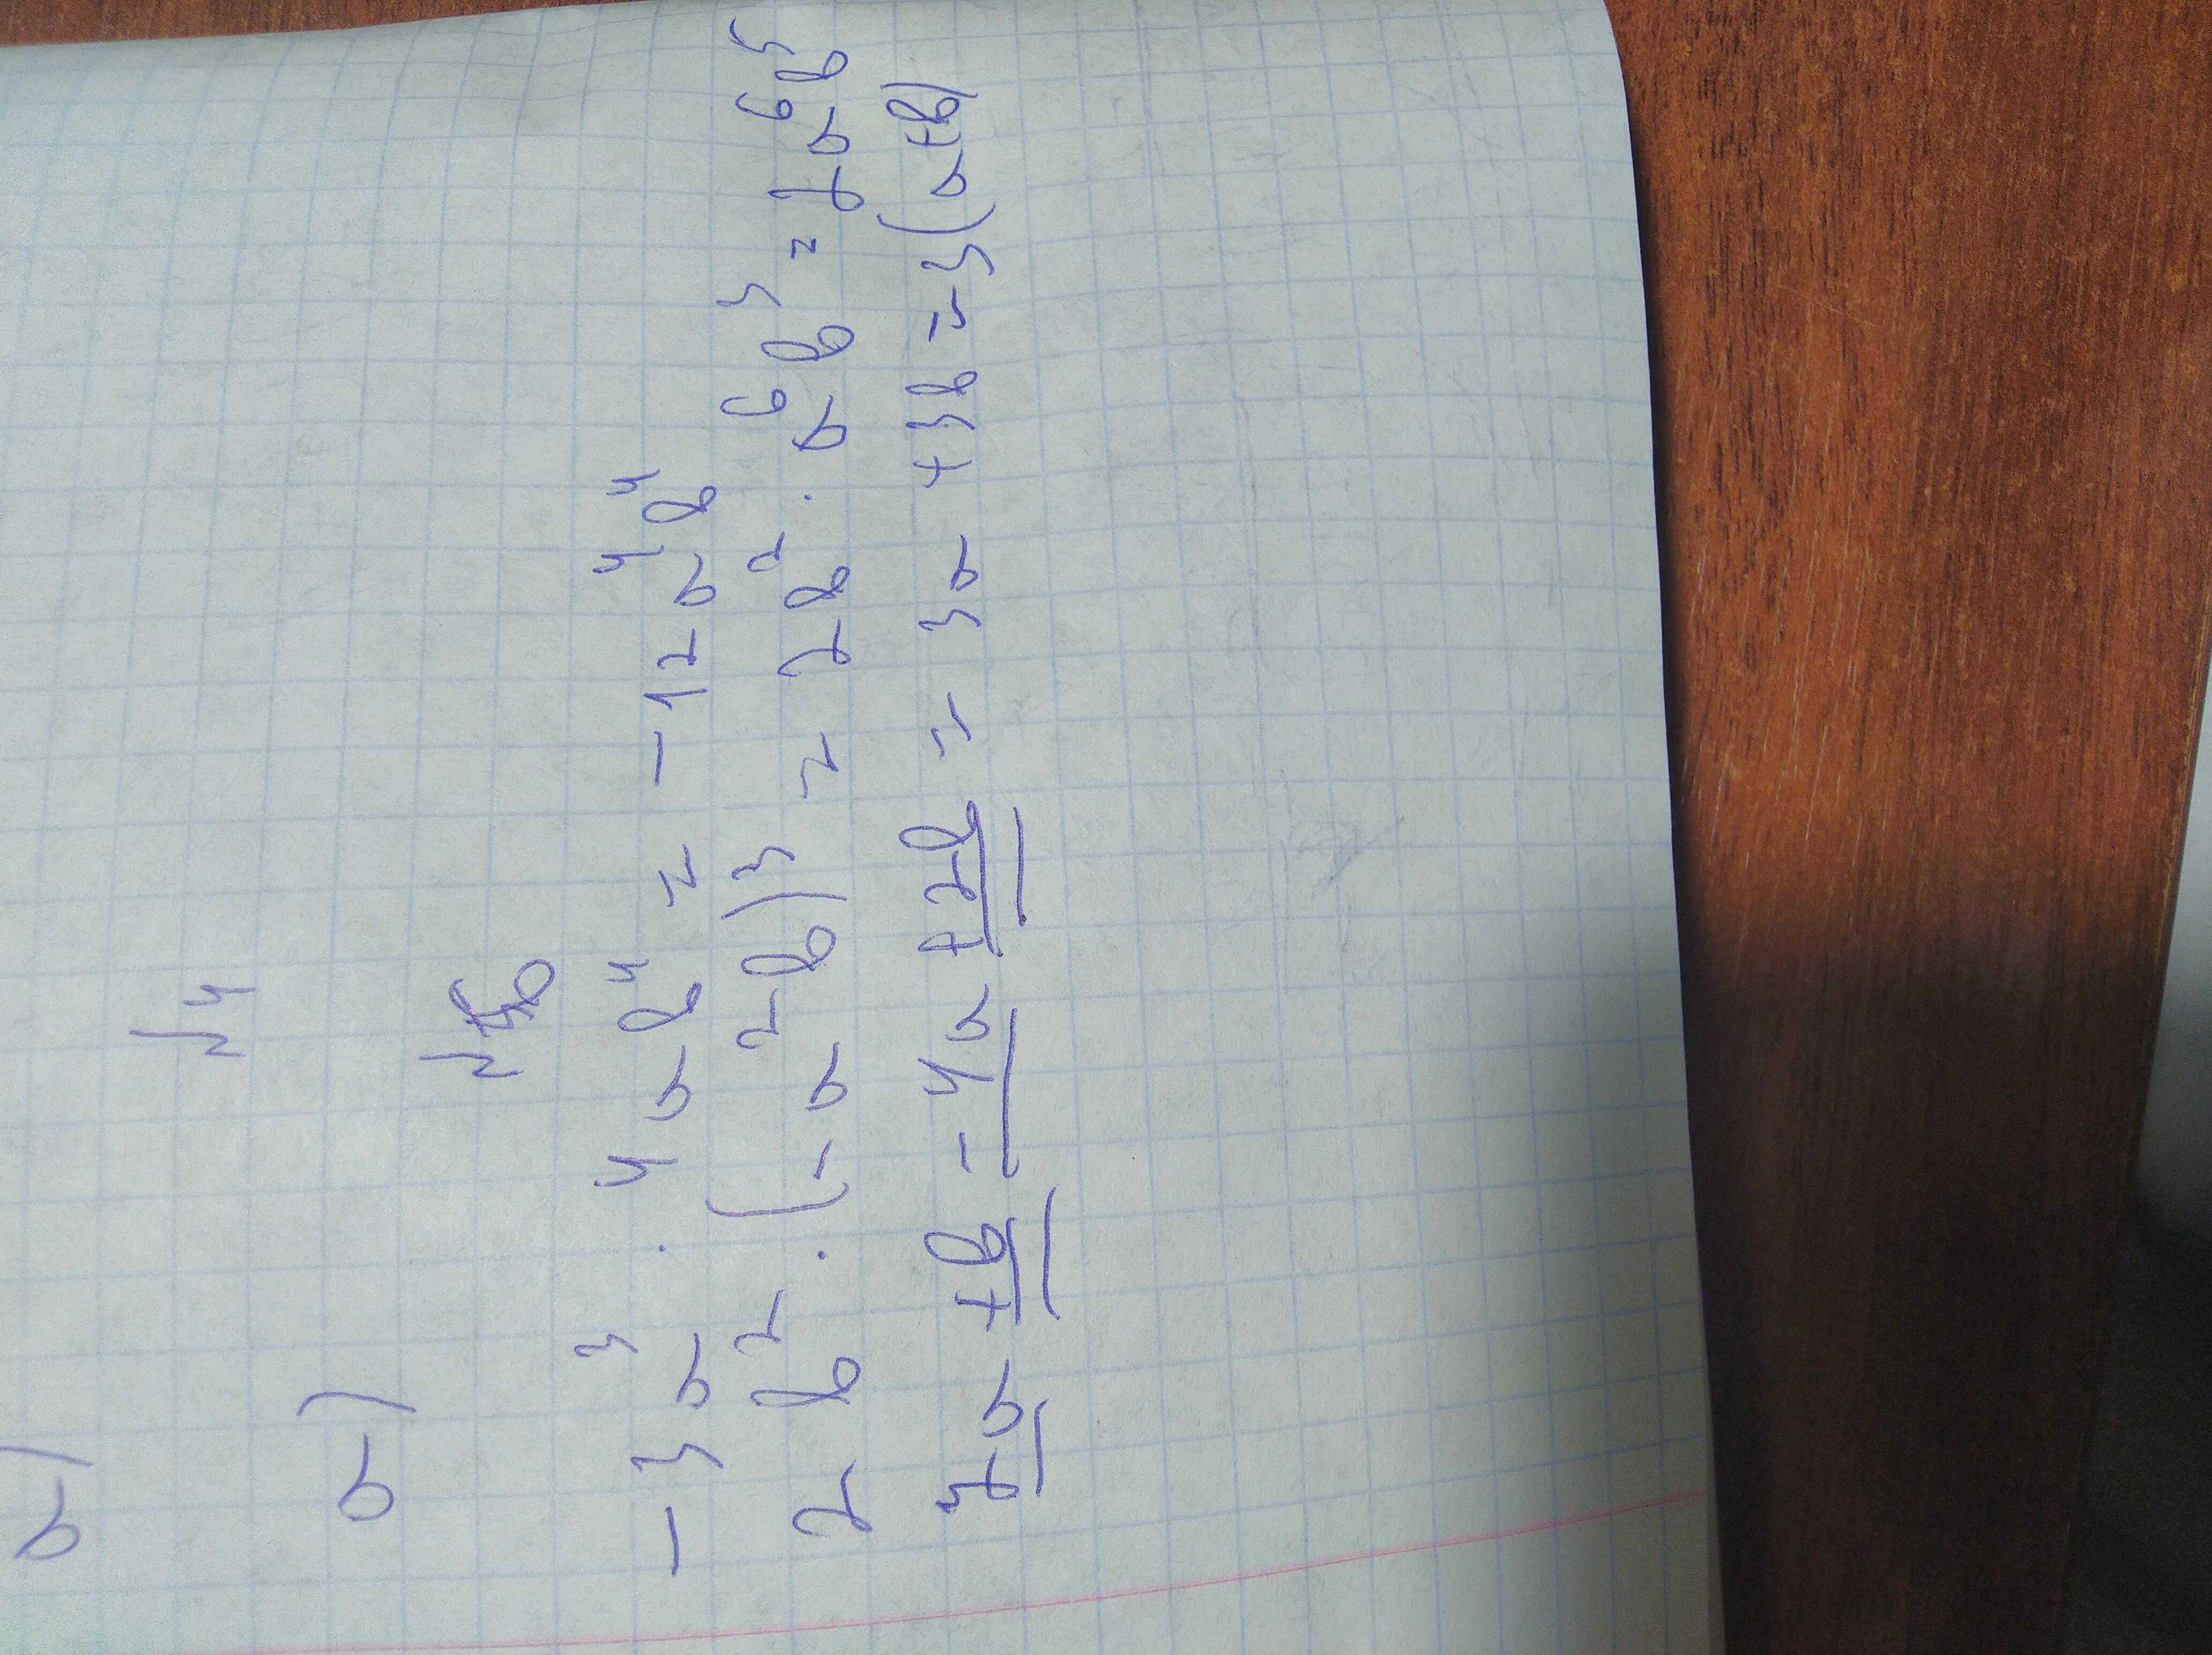 а)
№4
а)
№6
-3a³ · 4ab⁴ = -12a⁴b⁴
2b² · (-a²b)³ = 2b² · a⁶b³ = 2a⁶b⁵
7a +b -4a +2b = 3a +3b = 3(a+b)